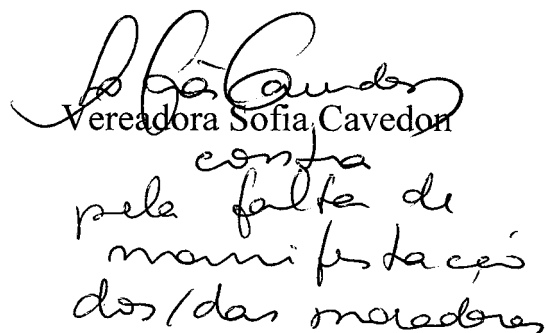 Sofia Cavedon
Vereadora Sofia Cavedon
contra
pela falta de
manifestação
dos/das moradores